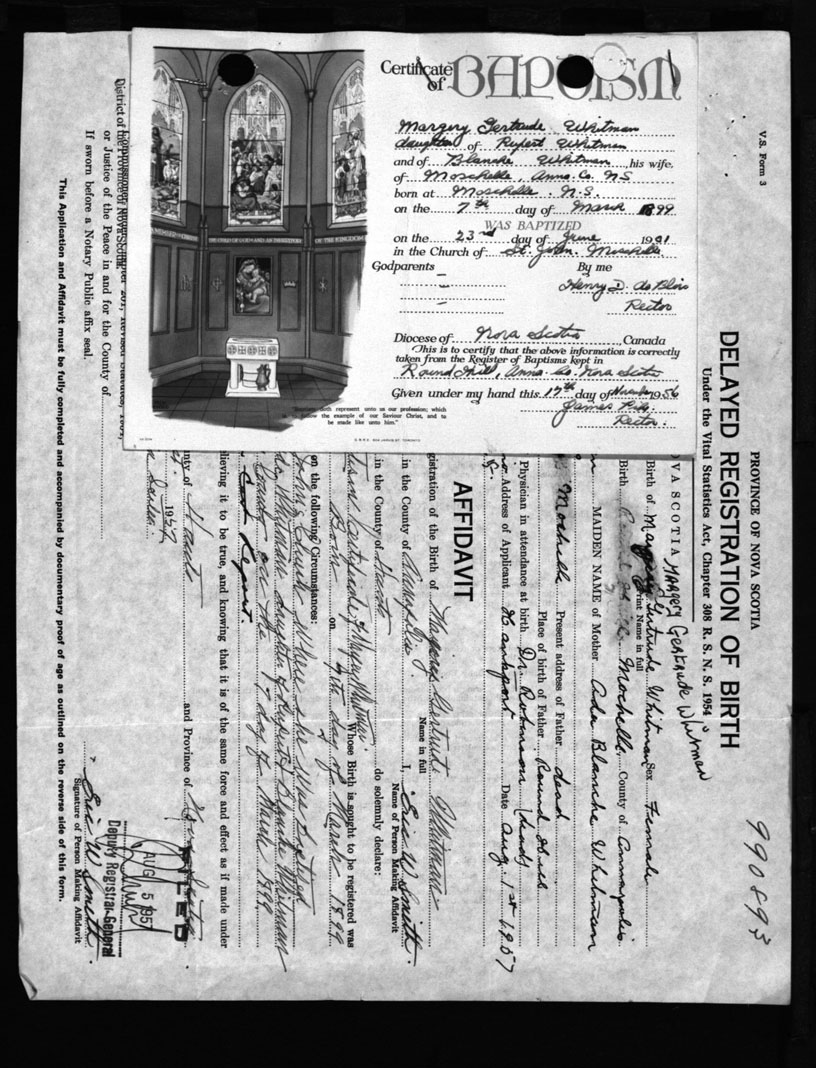 Certificate of BAPTISM
Margery Gertrude Whitman
daughter of Rupert Whitman
and of Blanche Whitman, his wife.
of Moschelle, Anna. Co. N.S
born at Moschelle. N.S.
on the 7th day of March 1899
WAS BAPTIZED
on the 23rd day of June 1901
in the Church of St. John. Moschelle
Godparents By me
Henry D. de Blois
Rector
Diocese of Nova Scotia, Canada
This is to certify that the above information is correctly
taken from the Register of Baptisms kept in
Round Hill, Anna. Co. Nova Scotia
Given under my hand this 17th day of November 1956
James
Rector.
represent unto us our profession; which
follow the example of our Saviour Christ, and to
be made like unto him."
V.S. Form 3
PROVINCE OF NOVA SCOTIA
990893
DELAYED REGISTRATION OF BIRTH
Under the Vital Statistics Act, Chapter 308 R. S. N. S. 1954
NOVA SCOTIA
Margery Gertrude Whitman
Birth of Margery Gertrude Whitman Sex Female
Print Name in full
Birth Mochelle County of Annapolis
MAIDEN NAME of Mother Ada Blanche Whitman
Mochelle Present address of Father dead
Place of birth of Father Round Hill
Physician in attendance at birth Dr. Robinson (dead)
Address of Applicant Hantsport Date Aug. 1st 1957
AFFIDAVIT
gistration of the Birth of Margery Gertrude Whitman
Name in full
in the County of Annapolis I, Eric W. Smith
Name of Person Making Affidavit
in the County of Hants do solemnly declare:
Whose Birth is sought to be registered was
Born on 7th day of March 1899
on the following Circumstances:
John's Church where she was baptized
Whitman daughter of Rupert & Blanche Whitman
County on the 7 day of March 1899
lieving it to be true, and knowing that it is of the same force and effect as if made under
nty of Hants and Province of Nova Scotia
1957
FILED
AUG 5 1957
Deputy Registrar General
Eric W. Smith
Signature of Person Making Affidavit
District of the Province of Nova Scotia
or Justice of the Peace in and for the County of
If sworn before a Notary Public affix seal.
This Application and Affidavit must be fully completed and accompanied by documentary proof of age as outlined on the reverse side of this form.